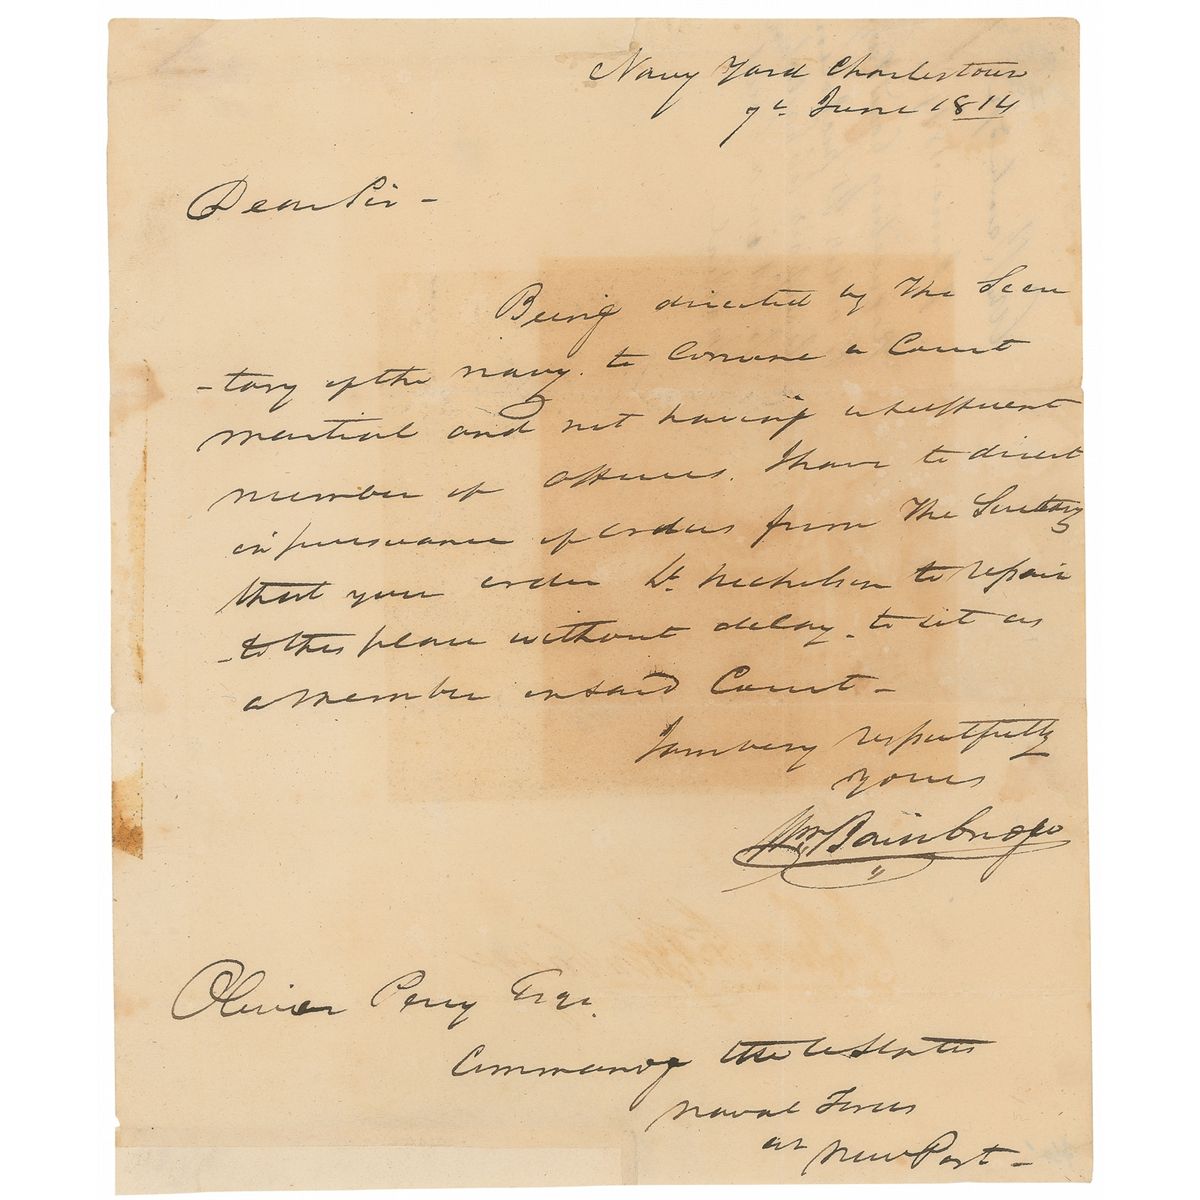 Navy Yard Charlestown
7th June 1814
Dear Sir -
Being directed by The Secre
-tary of the navy. to Convene a Court
martial and not having a sufficient
number of officers. I have to direct
in pursuance of orders from The Secretary
that you order Lt. Nicholson to repair
- to this place without delay - to sit as
a member in said Court -
I am very respectfully
yours
Wm Bainbridge
Oliver Perry Esqr.
Commandg the U States
Naval Forces
at New Port -